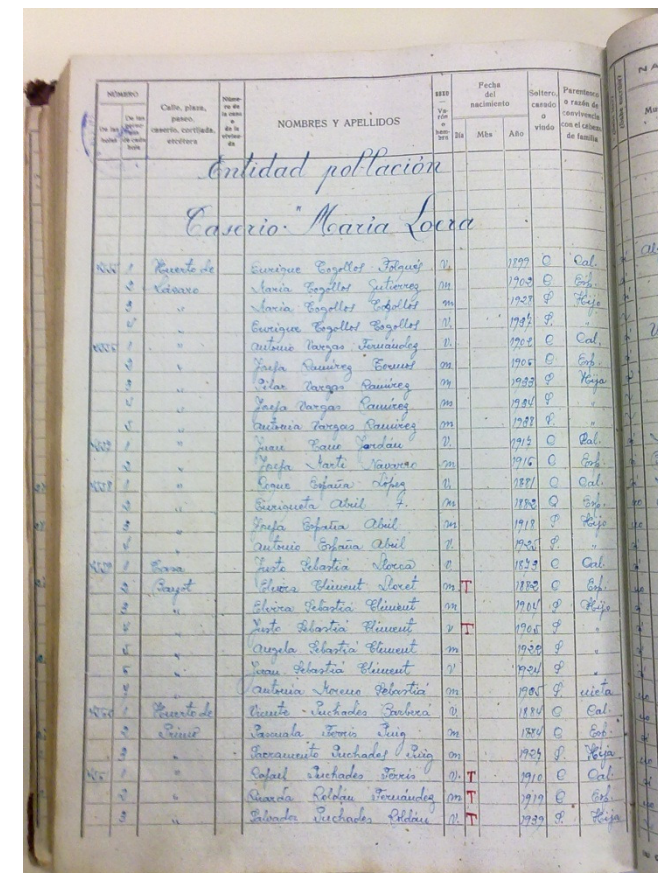 NÚMERO
De las hojas
Calle, plaza, paseo, caserío, cortijada, etcétera
Núme- ro de la casa o de la vivien- da
NOMBRES Y APELLIDOS
SEXO — Va- rón o hem- bra
Fecha del nacimiento
Día Mes Año
Soltero, casado o viudo
Parentesco o razón de convivencia con el cabeza de familia
Entidad población
Caserio "Maria
1 Huerto de Enrique Cogollos v. 1899 C Cab.
2 Lázaro Maria Cogollos Gutierrez m 1902 C Esp.
3 " Maria Cogollos Cogollos m 1928 S Hija
4 " Enrique Cogollos Cogollos v. 1937 S. "
1 " Antonio Vargas Fernández v. 1902 C Cab.
2 " Josefa Ramírez m 1905 C Esp.
3 " Pilar Vargas Ramírez m 1933 S Hija
4 " Josefa Vargas Ramírez m 1934 S "
5 " Antonia Vargas Ramírez m 1938 S. "
1 " Juan Cano Jordán v. 1913 C Cab.
2 " Josefa Marti Navarro m 1916 C Esp.
1 " Roque España López v. 1881 C Cab.
2 " Enriqueta Abril F. m 1882 C Esp.
3 " Josefa España Abril m 1918 S Hija
4 " Antonio España Abril v. 1925 S. "
1 Casa Justo Sebastiá Llorca v. 1873 C Cab.
2 Payot Elvira Climent Lloret m T 1882 C Esp.
3 " Elvira Sebastiá Climent m 1904 S Hija
4 " Justo Sebastiá Climent v T 1905 S "
5 " Angela Sebastiá Climent m S "
6 " Juan Sebastiá Climent v 1924 S "
7 " Antonia Moreno Sebastiá m 1935 S nieta
1 Huerto de Vicente Puchades Barberá v. 1884 C Cab.
2 Primo Pascuala Ferris Puig m 1884 C Esp.
3 " Sacramento Puchades Puig m 1927 S. Hija
1 " Rafael Puchades Ferris v. T 1910 C Cab.
2 " Roldán Fernández m T 1919 C Esp.
3 " Salvador Puchades Roldán v. T 1939 S. Hijo